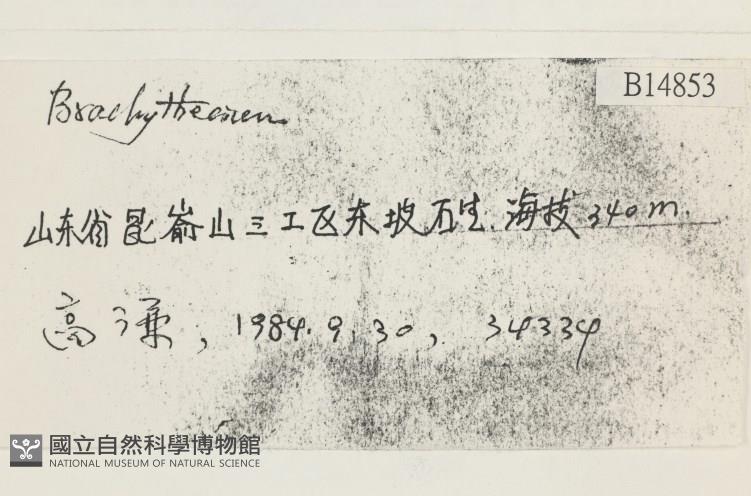 B14853
Brachythecium
山东省昆嵛山三工区东坡石生.海拔340m.
高谦, 1984.9.30, 34334
國立自然科學博物館
NATIONAL MUSEUM OF NATURAL SCIENCE